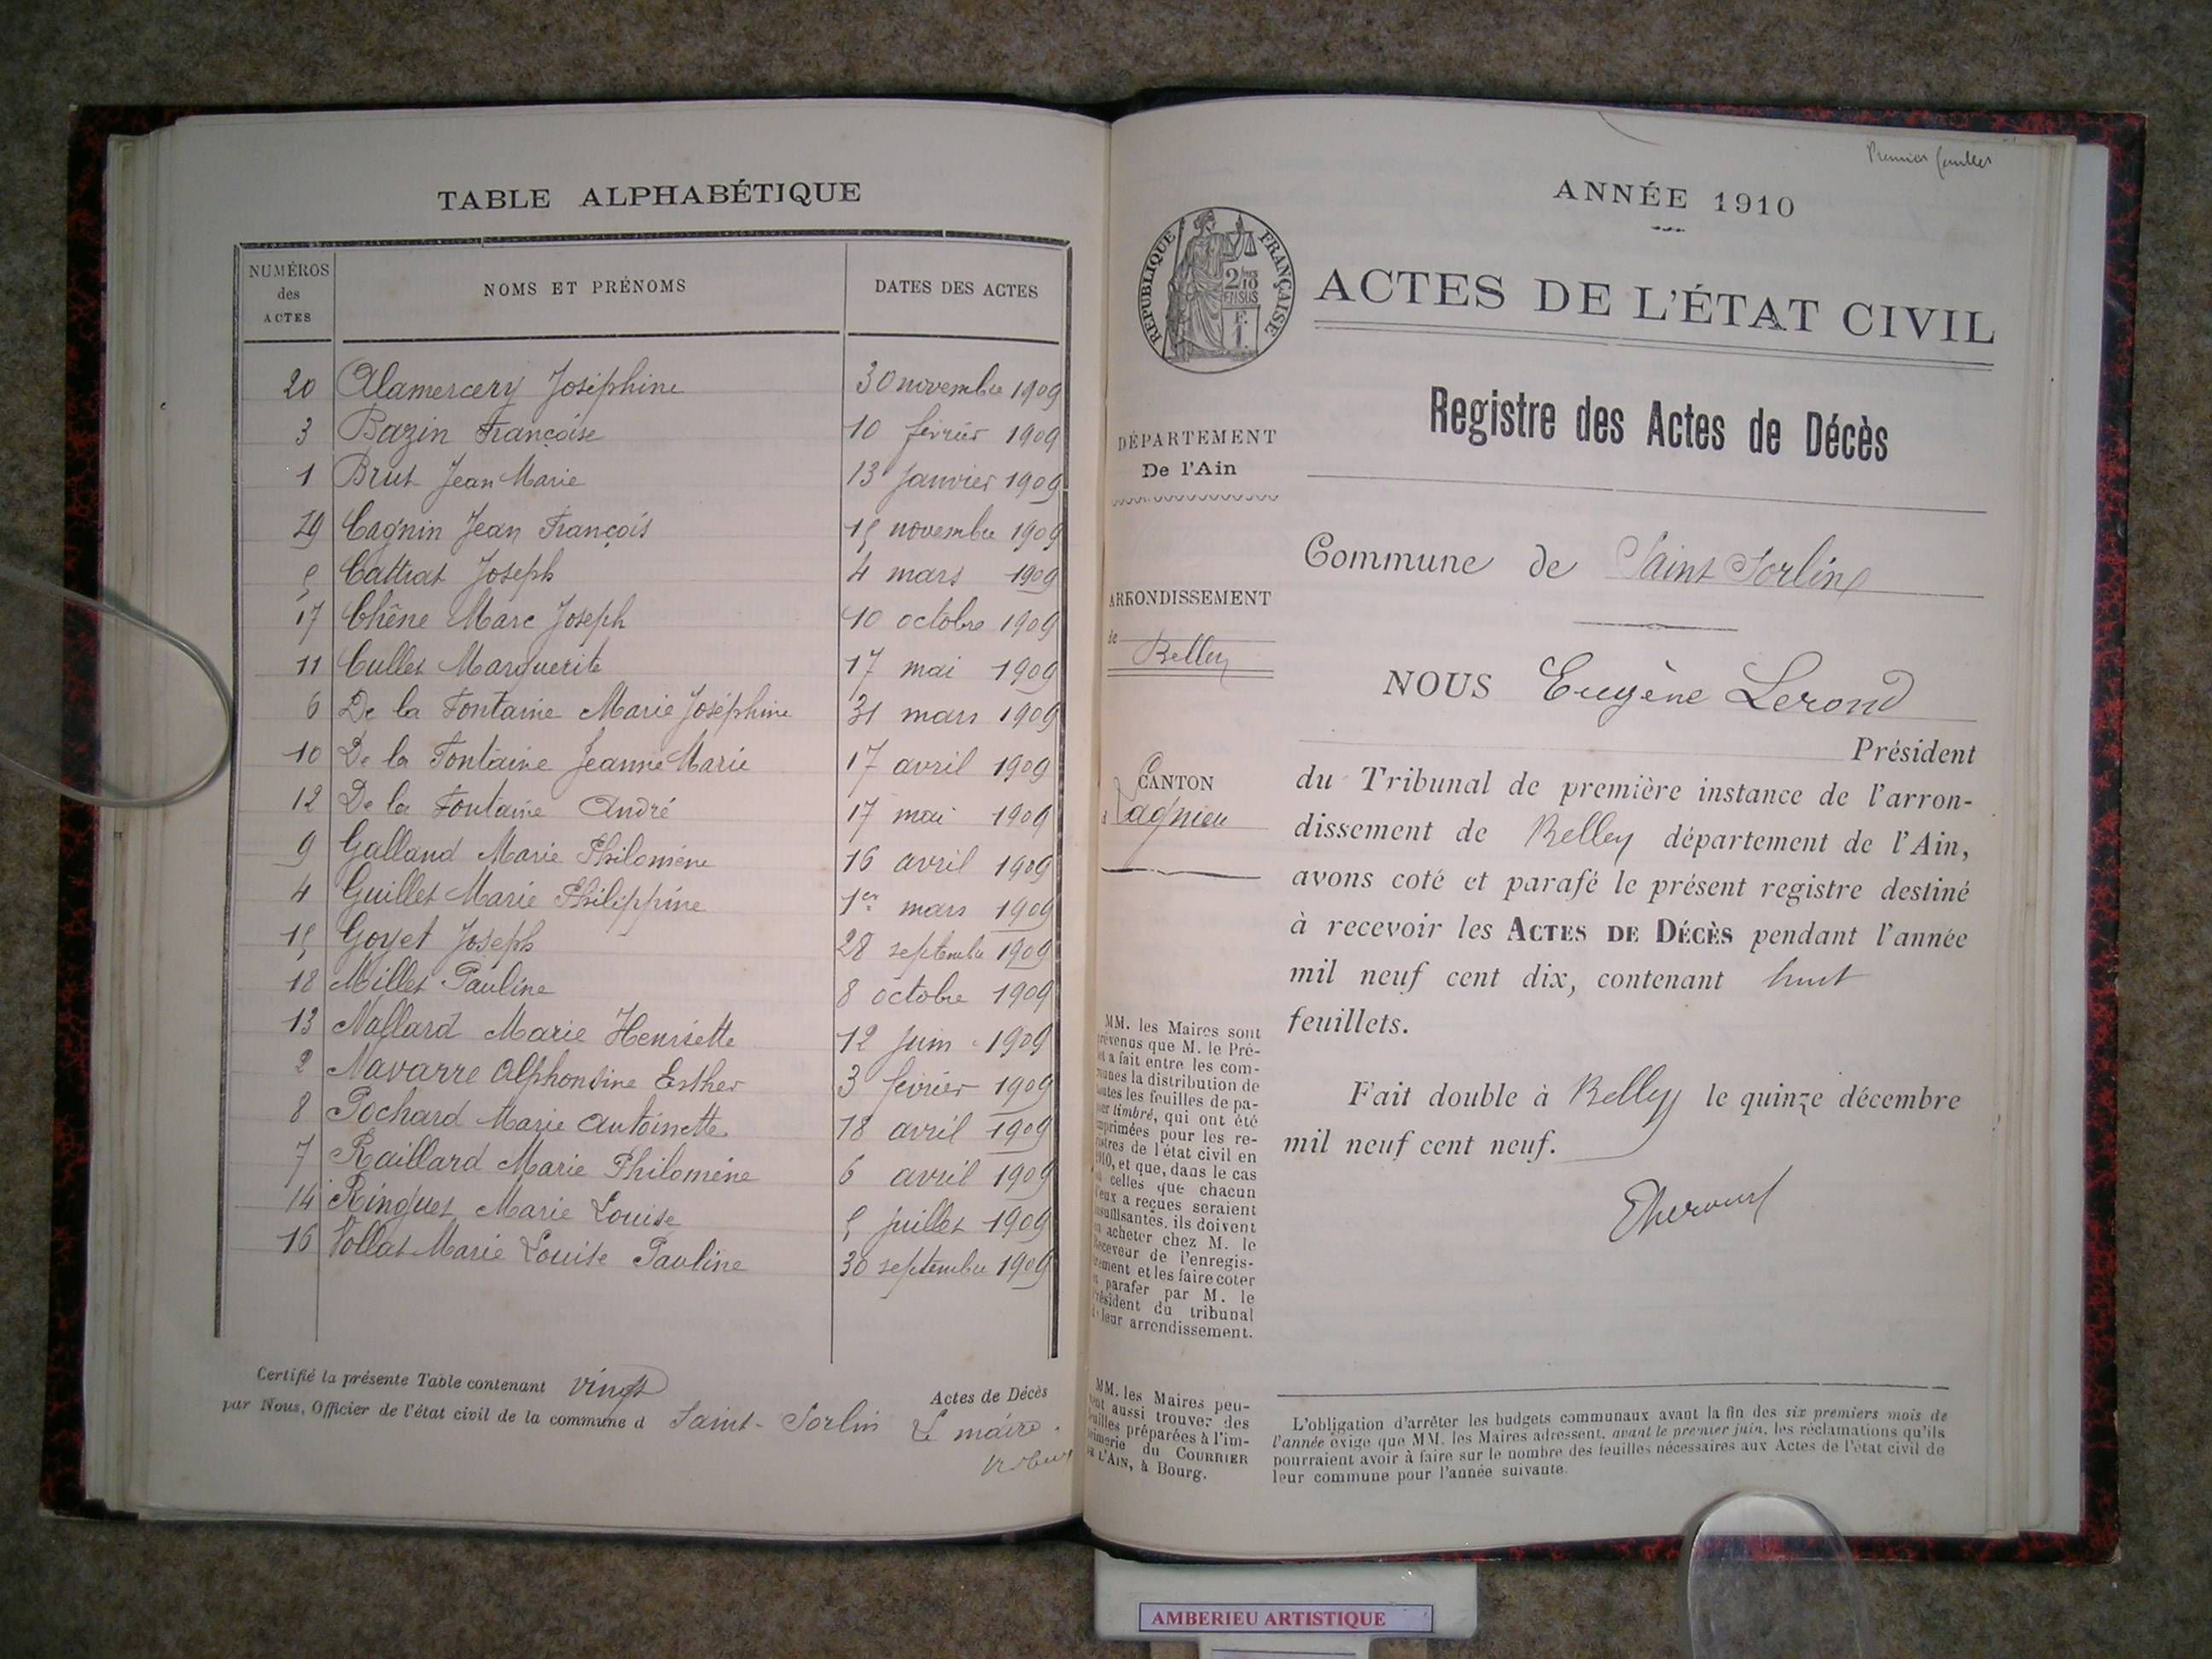 TABLE ALPHABÉTIQUE
NUMÉROS des ACTES NOMS ET PRÉNOMS DATES DES ACTES
20 Alamercery Joséphine 30 novembre 1909
3 Bazin Françoise 10 février 1909
1 Brut Jean Marie 13 janvier 1909
19 Cagnin Jean François 15 novembre 1909
5 Cattiat Joseph 4 mars 1909
17 Chêne Marc Joseph 10 octobre 1909
11 Cullet Marguerite 17 mai 1909
6 De la Fontaine Marie Joséphine 31 mars 1909
10 De la Fontaine Jeanne Marie 17 avril 1909
12 De la Fontaine André 17 mai 1909
9 Galland Marie Philomène 16 avril 1909
4 Guillet Marie Philippine 1er mars 1909
15 Goyet Joseph 28 septembre 1909
18 Millet Pauline 8 octobre 1909
13 Nallard Marie Henriette 12 juin 1909
2 Navarre Alphonsine Esther 3 février 1909
8 Pochard Marie Antoinette 18 avril 1909
7 Raillard Marie Philomène 6 avril 1909
14 Ringuet Marie Louise 5 juillet 1909
16 Vollat Marie Louise Pauline 30 septembre 1909
Certifié la présente Table contenant vingt Actes de Décès
par Nous, Officier de l'état civil de la commune d Saint-Sorlin Le maire.
Premier feuillet
ANNÉE 1910
RÉPUBLIQUE FRANÇAISE
2/10 EN SUS
F. 1.
ACTES DE L'ÉTAT CIVIL
Registre des Actes de Décès
DÉPARTEMENT
De l'Ain
ARRONDISSEMENT
de
Belley
CANTON
d Lagnieu
Commune de Saint Sorlin
NOUS Eugène Lerond
Président
du Tribunal de première instance de l'arron-
dissement de Belley département de l'Ain,
avons coté et parafé le présent registre destiné
à recevoir les ACTES DE DÉCÈS pendant l'année
mil neuf cent dix, contenant huit
feuillets.
Fait double à Belley le quinze décembre
mil neuf cent neuf.
MM. les Maires sont
prévenus que M. le Pré-
fet a fait entre les com-
munes la distribution de
toutes les feuilles de pa-
pier timbré, qui ont été
imprimées pour les re-
gistres de l'état civil en
1910, et que, dans le cas
où celles que chacun
d'eux a reçues seraient
insuffisantes, ils doivent
en acheter chez M. le
Receveur de l'enregis-
trement et les faire coter
et parafer par M. le
Président du tribunal
de leur arrondissement.
MM. les Maires peu-
vent aussi trouver des
feuilles préparées à l'im-
primerie du COURRIER
DE L'AIN, à Bourg.
L'obligation d'arrêter les budgets communaux avant la fin des six premiers mois de
l'année exige que MM. les Maires adressent, avant le premier juin, les réclamations qu'ils
pourraient avoir à faire sur le nombre des feuilles nécessaires aux Actes de l'état civil de
leur commune pour l'année suivante.
AMBERIEU ARTISTIQUE